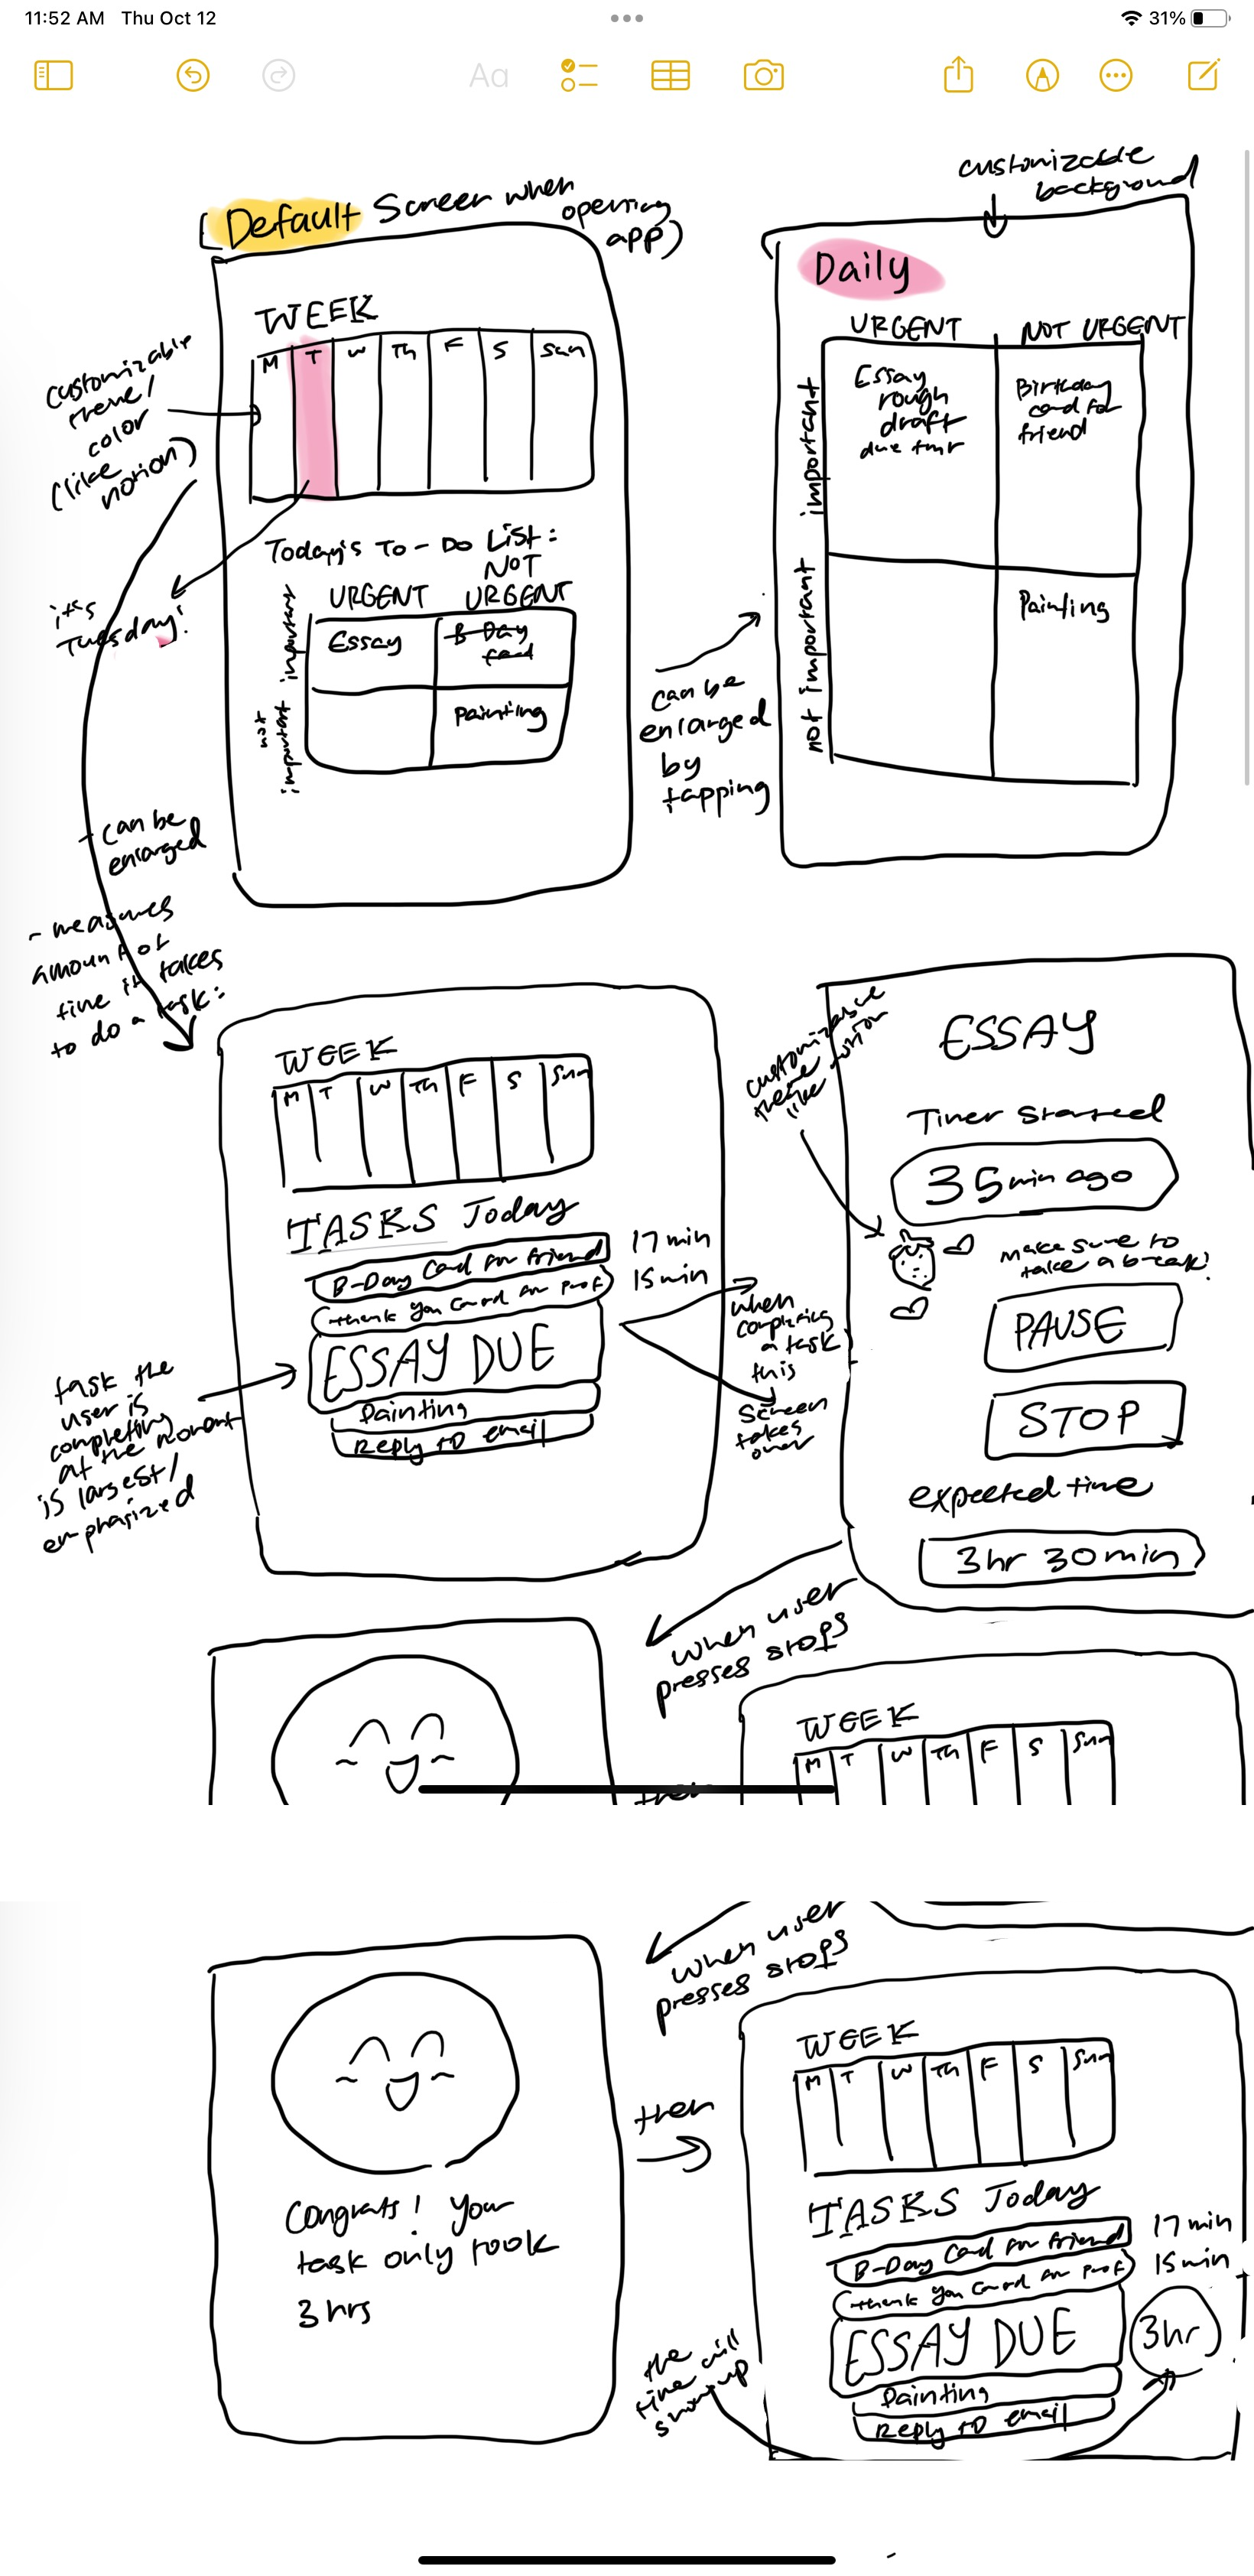 11:52 AM Thu Oct 12
31%
Aa
(Default Screen when
opening
app)
WEEK
M T W Th F S Sun
customizable
theme/
color
(like
notion)
it's
Tuesday!
Today's To-Do List:
URGENT
NOT
URGENT
important
not
important
Essay
B-Day
Card
Painting
can be
enlarged
by
tapping
customizable
background
Daily
URGENT NOT URGENT
important
not important
Essay
rough
draft
due tmr
Birthday
card for
friend
Painting
- can be
enlarged
- measures
amount of
time it takes
to do a task:
WEEK
M T W Th F S Sun
TASKS Today
B-Day Card for friend 17 min
thank you card for prof 15 min
ESSAY DUE
Painting
Reply to email
task the
user is
completing
at the moment
is largest/
emphasized
when
completing
a task
this
screen
takes
over
customizable
theme
like notion
ESSAY
Timer Started
35 min ago
make sure to
take a break!
PAUSE
STOP
expected time
3hr 30min
when user
presses stops
then
WEEK
M T W Th F S Sun
when user
presses stops
Congrats! your
task only took
3 hrs
then
WEEK
M T W Th F S Sun
TASKS Today
B-Day Card for friend 17 min
thank you card for prof 15 min
ESSAY DUE 3hr
Painting
Reply to email
the
time will
show up